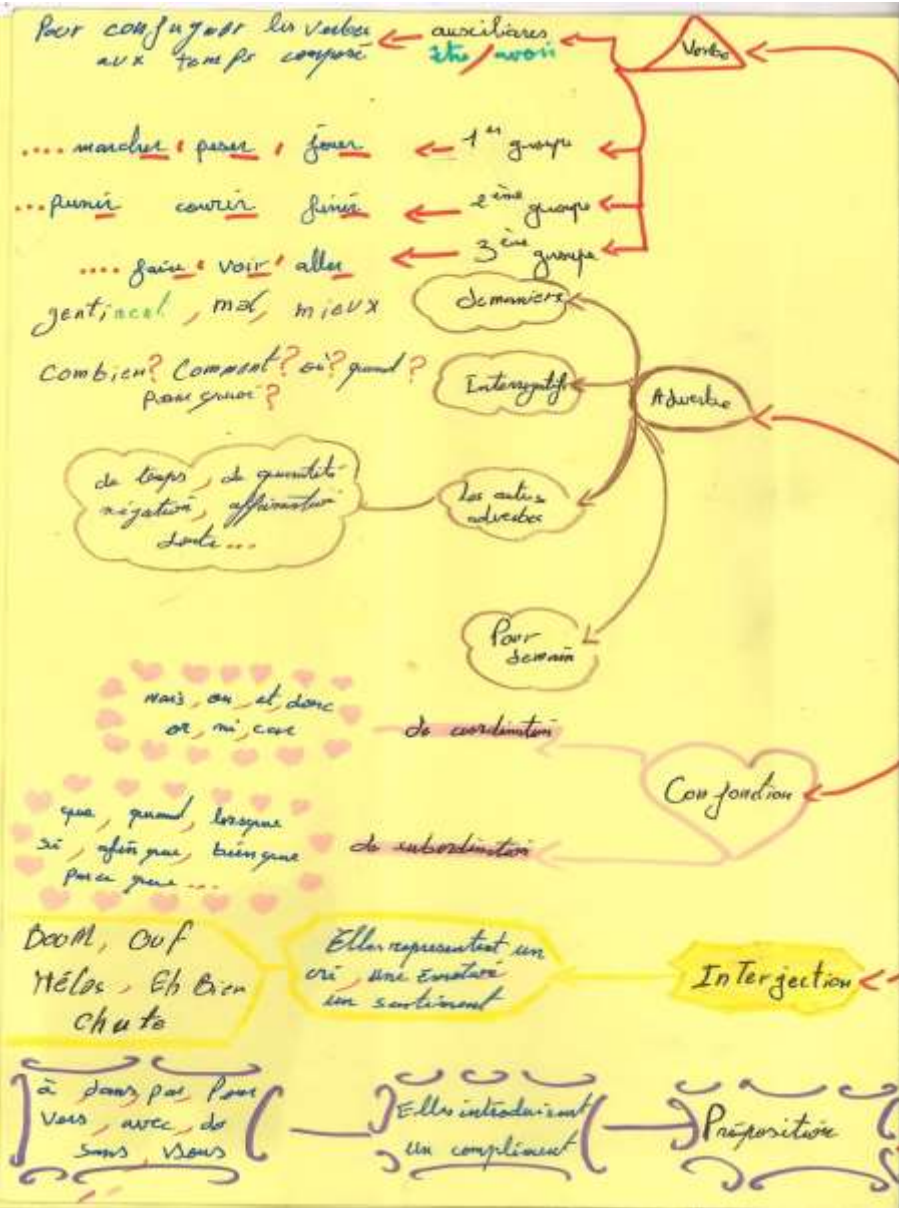 Pour conjuguer les verbes
aux temps composé
auxiliaires
être/avoir
Verbe
.... marcher, peser, jouer
1er groupe
... punir courir finir
2ème groupe
.... faire, voir, aller
3ème groupe
gentiment, mal, mieux
de maniere
Combien? Comment? où? quand?
pour quoi?
Interrogatifs
Adverbe
de temps, de quantité
négation, affirmation
doute ...
Les autres
adverbes
Pour
demain
mais, ou, et, donc
or, ni, car
de coordination
Conjonction
que, quand, lorsque
si, afin que, bien que
parce que ...
de subordination
BooM, Ouf
Hélas, Eh Bien
Chute
Elles representent un
cri, une émotion
un sentiment
InTerjection
à dans par Pour
Vers, avec, de
Sans, sous
Elles introduisent
un complément
Préposition